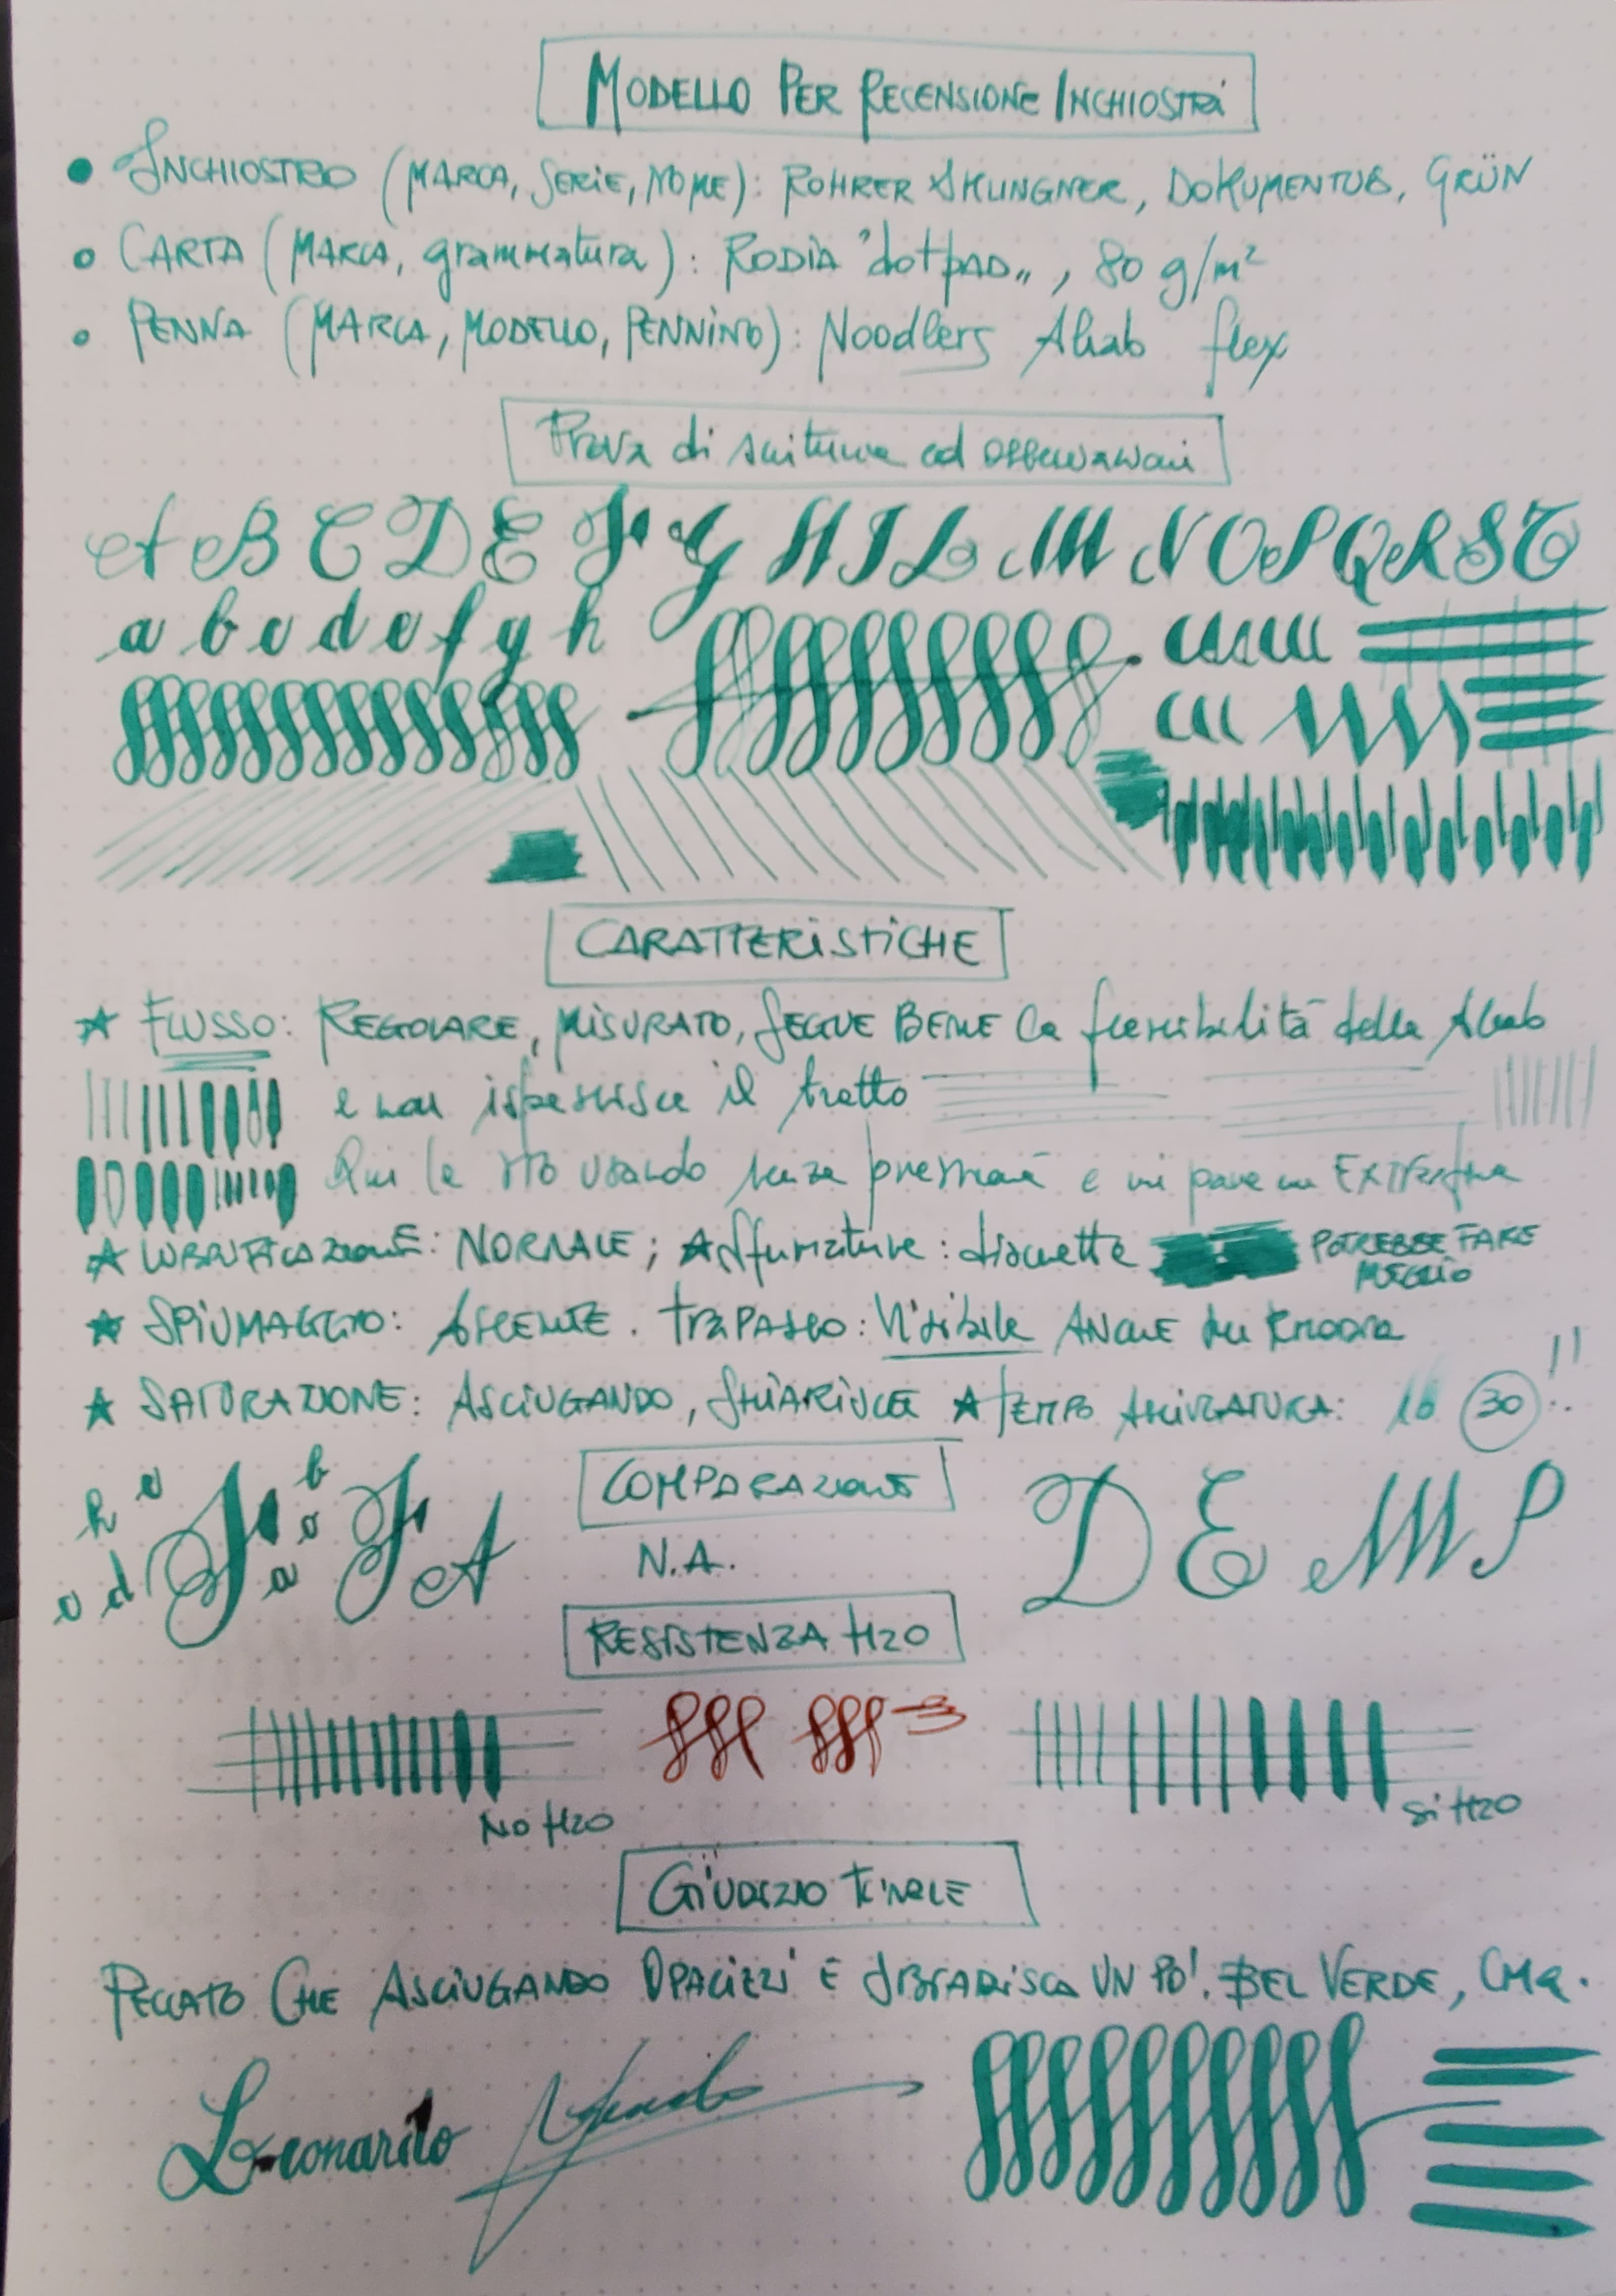 MODELLO PER RECENSIONE INCHIOSTRI
INCHIOSTRO (MARCA, SERIE, NOME): ROHRER & KLINGNER, DOKUMENTUS, GRÜN
CARTA (MARCA, grammatura): RODIA "dotPAD", 80 g/m²
PENNA (MARCA, MODELLO, PENNINO): Noodlers Ahab flex
Prova di scrittura ed osservazioni
A B C D E F G H I L M N O P Q R S T
a b c d e f g h
CARATTERISTICHE
FLUSSO: REGOLARE, MISURATO, SEGUE BENE la flessibilità della Ahab
e non ispessisce il tratto
Qui la sto usando senza pressione e mi pare un EXTRAfine
LUBRIFICAZIONE: NORMALE; Sfumature: discrete POTREBBE FARE
MEGLIO
SPIUMAGGIO: ASSENTE. TRAPASSO: Visibile ANCHE su RHODIA
SATURAZIONE: ASCIUGANDO, SCHIARISCE TEMPO ASCIUGATURA: 16 30!!
h e b
o
e d F a F A
COMPARAZIONE
D E M P
N.A.
RESISTENZA H2O
NO H2O
Si H2O
GIUDIZIO FINALE
PECCATO CHE ASCIUGANDO OPACIZZI E SBIADISCA UN PO'. BEL VERDE, CMQ.
Leonardo